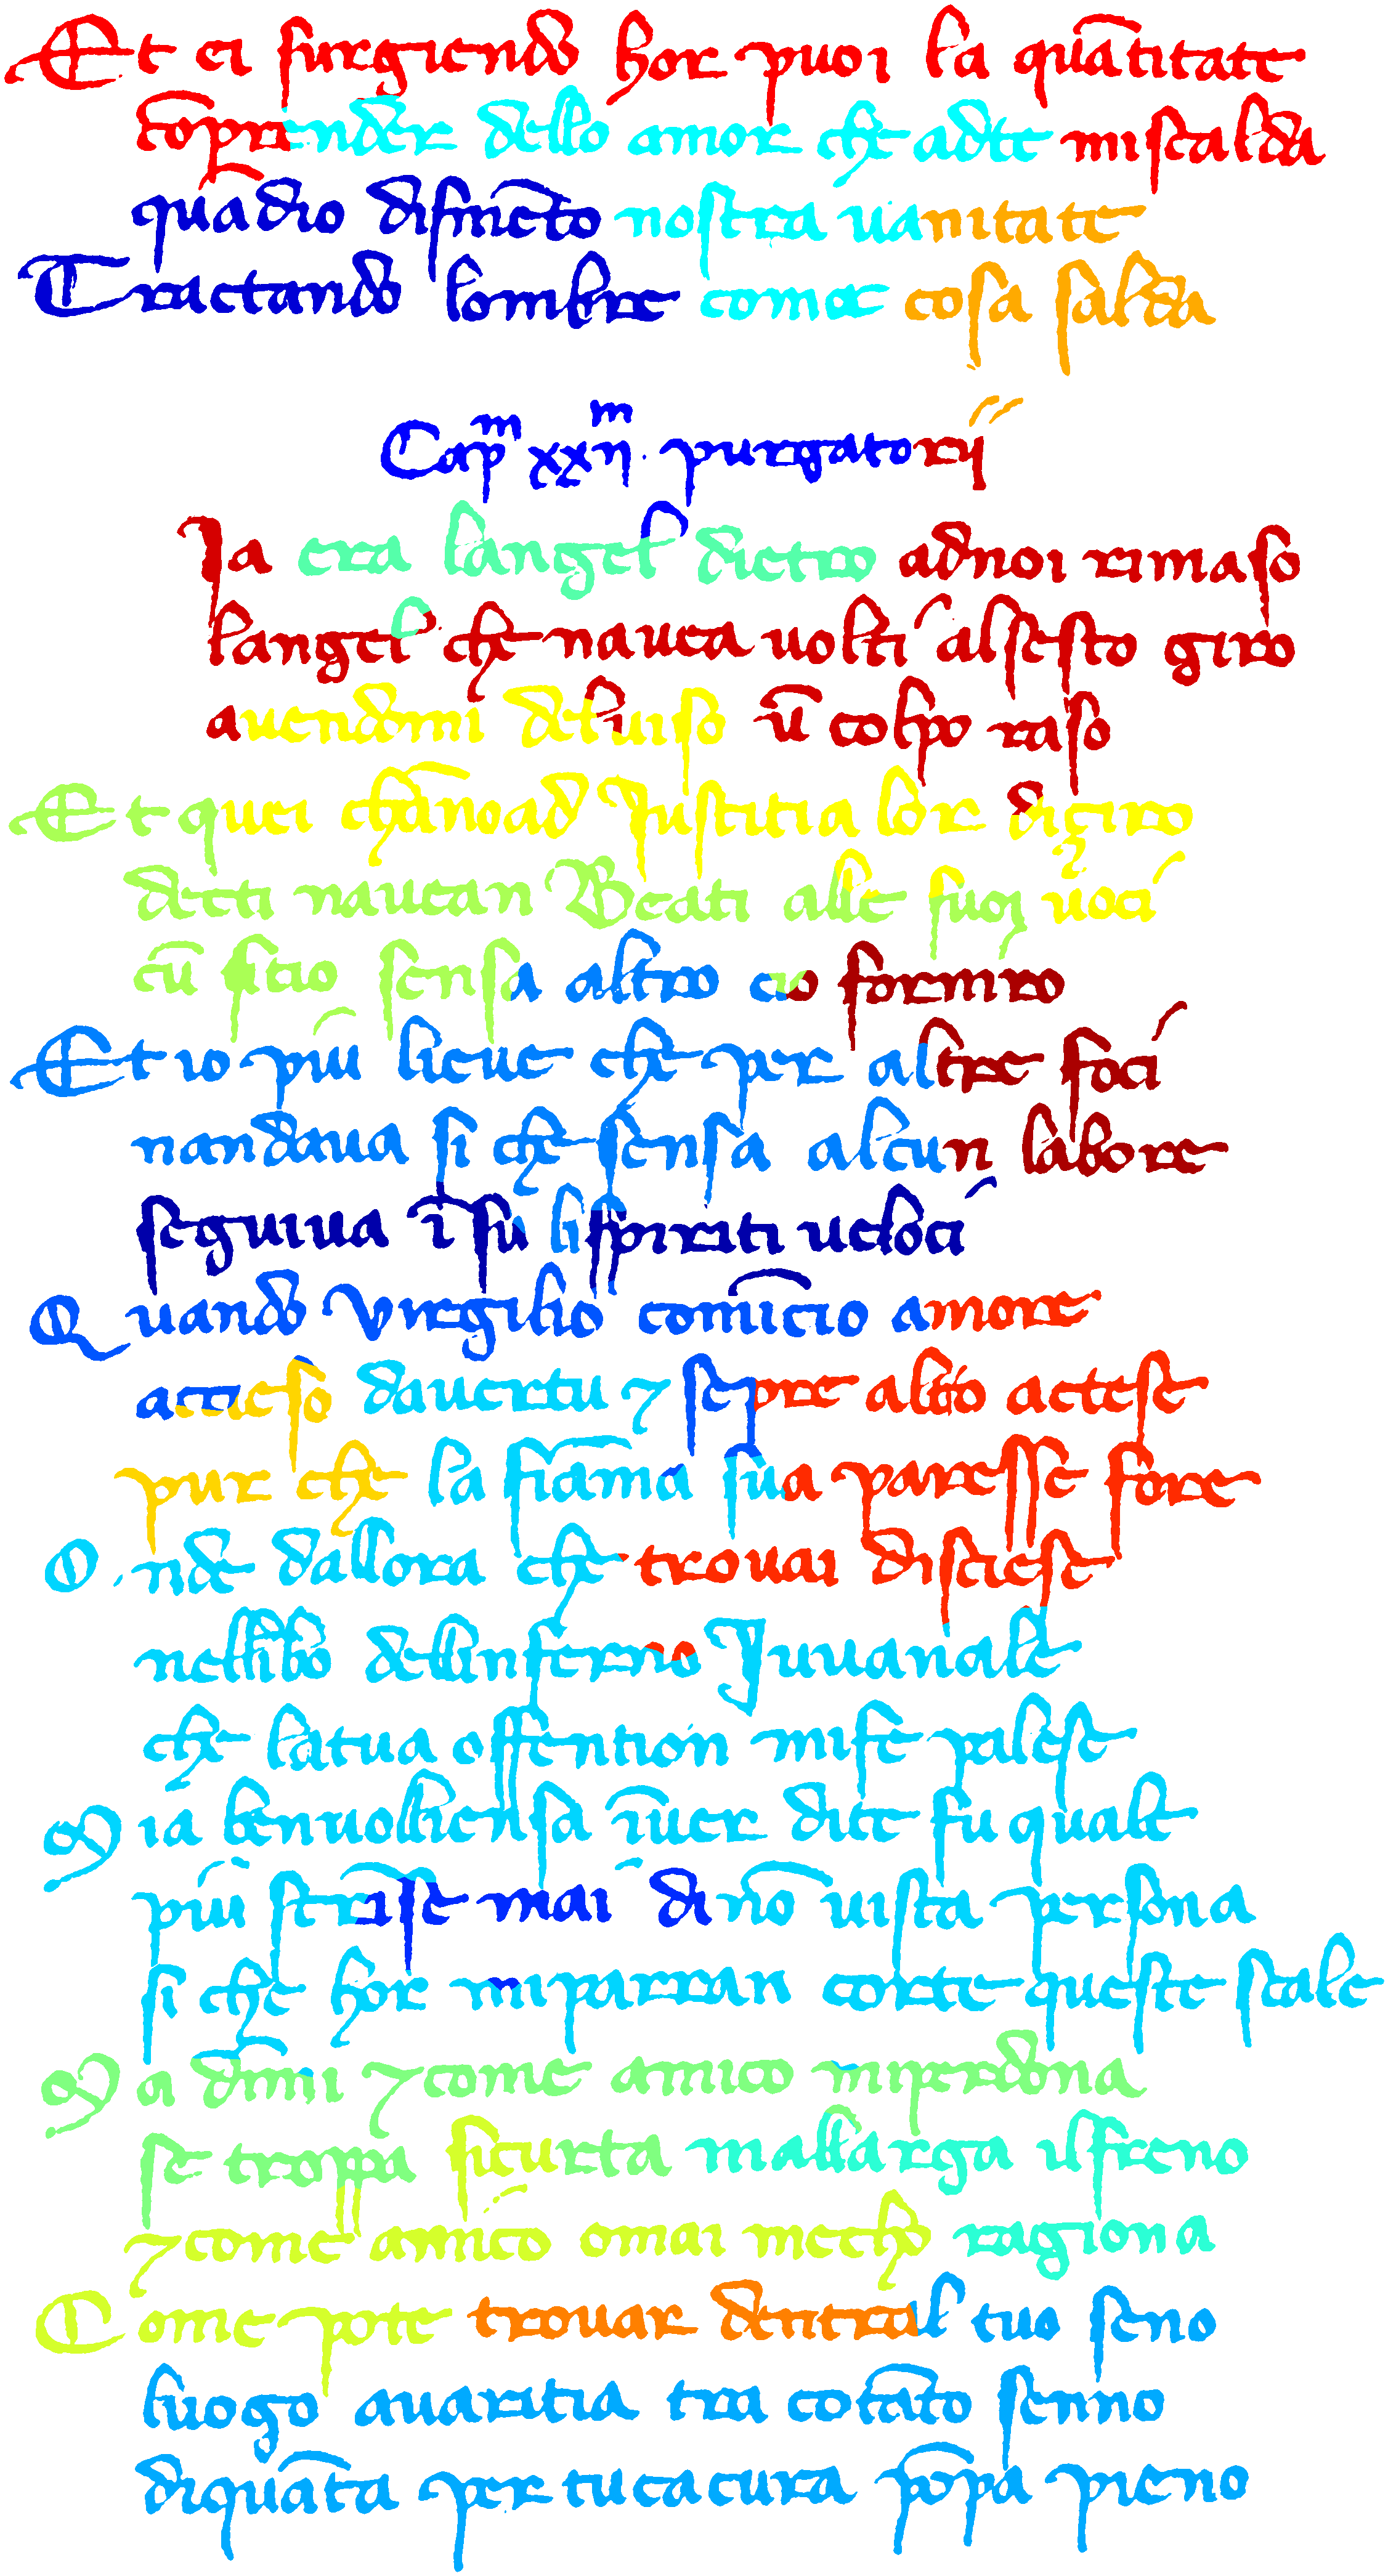 Et ei surgiendo hor puoi la quātitate
cōprender dello amor che adte miscalda
quādio dismēto nostra uanitate
Tractando lombre come cosa salda
Capm xxijm. purgatorij
Ia era langel dietro adnoi rimaso
langel che nauea uolti alsesto giro
auendomi deluiso ū colpo raso
Et quei chānoad Justitia lor diçiro
decti nauean Beati alle suoi uoci
cū sitio sensa altro cio forniro
Et io piu lieue che per altre foci
nandaua si che sensa alcun labore
seguiua ī su lispiriti ueloci
Quando Virgilio comīcio amore
acceso dauertu 7 sempre altrō actese
pur che la fiāma sua paresse fore
O nde dallora che trouai disciese
nellimbo dellinferno Juuanale
che latua offention mife palese
M ia benuolliensa īuer dite fu quale
piu strīse mai di nō uista persona
si che hor miparran corte queste scale
M a dīmi 7 come amico miperdona
se troppa sicurta mallarga ilfreno
7 come amico omai mecho ragiona
Come pote trouar dentral tuo seno
luogo auaritia tra cotāto senno
diquāta per tuea cura pōpa pieno